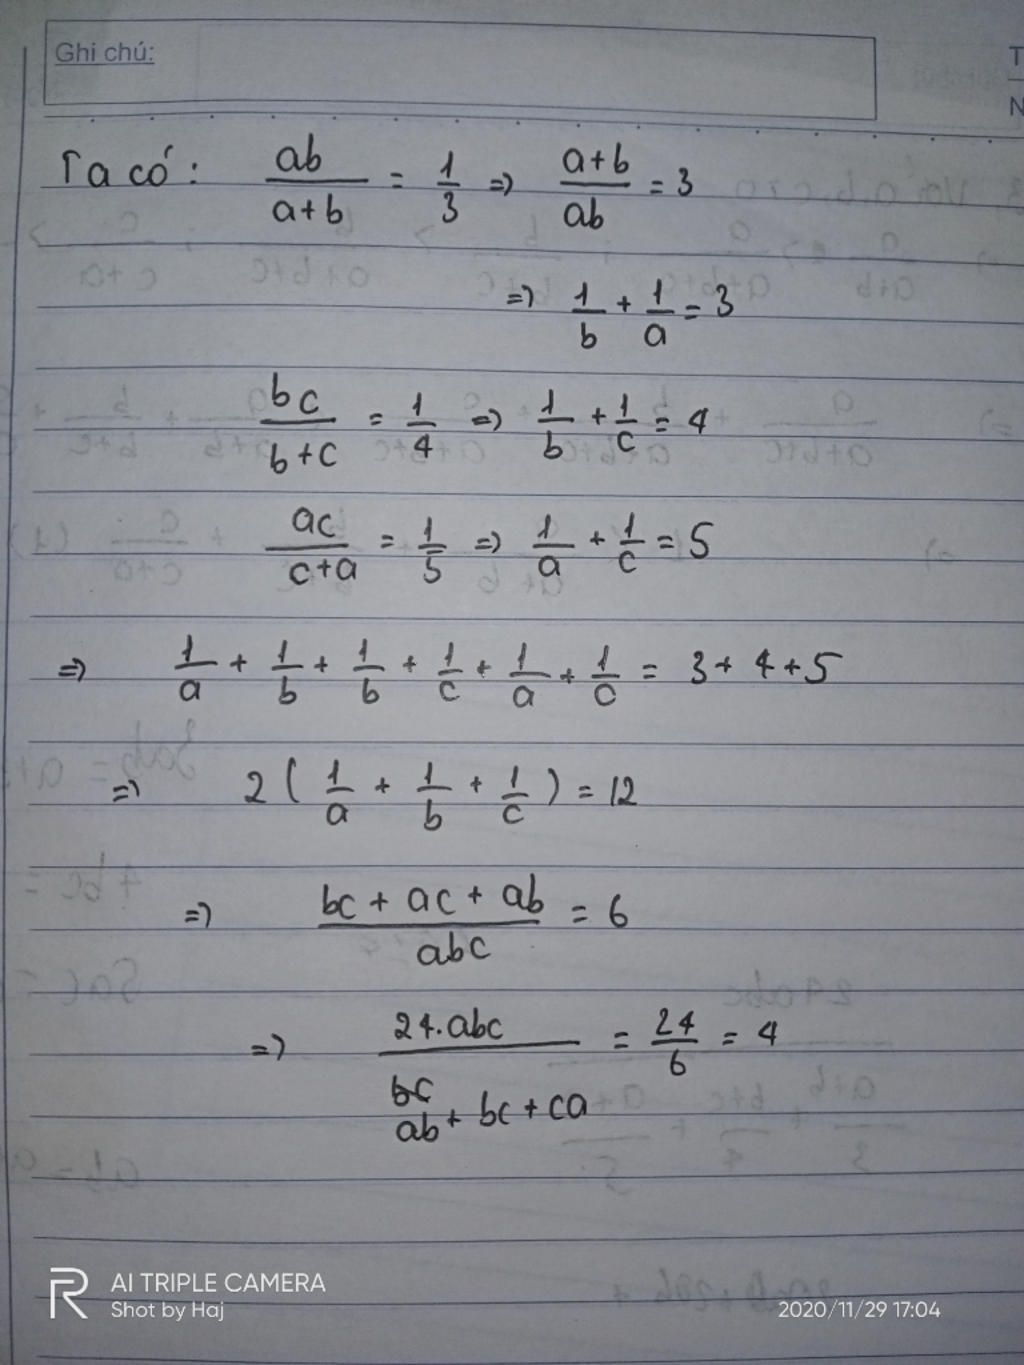 Ghi chú:
T
N
Ta có: ab/(a+b) = 1/3 => (a+b)/ab = 3
=> 1/b + 1/a = 3
bc/(b+c) = 1/4 => 1/b + 1/c = 4
ac/(c+a) = 1/5 => 1/a + 1/c = 5
=> 1/a + 1/b + 1/b + 1/c + 1/a + 1/c = 3 + 4 + 5
=> 2(1/a + 1/b + 1/c) = 12
=> (bc + ac + ab)/abc = 6
=> 24.abc/(ab + bc + ca) = 24/6 = 4
AI TRIPLE CAMERA
Shot by Haj
2020/11/29 17:04